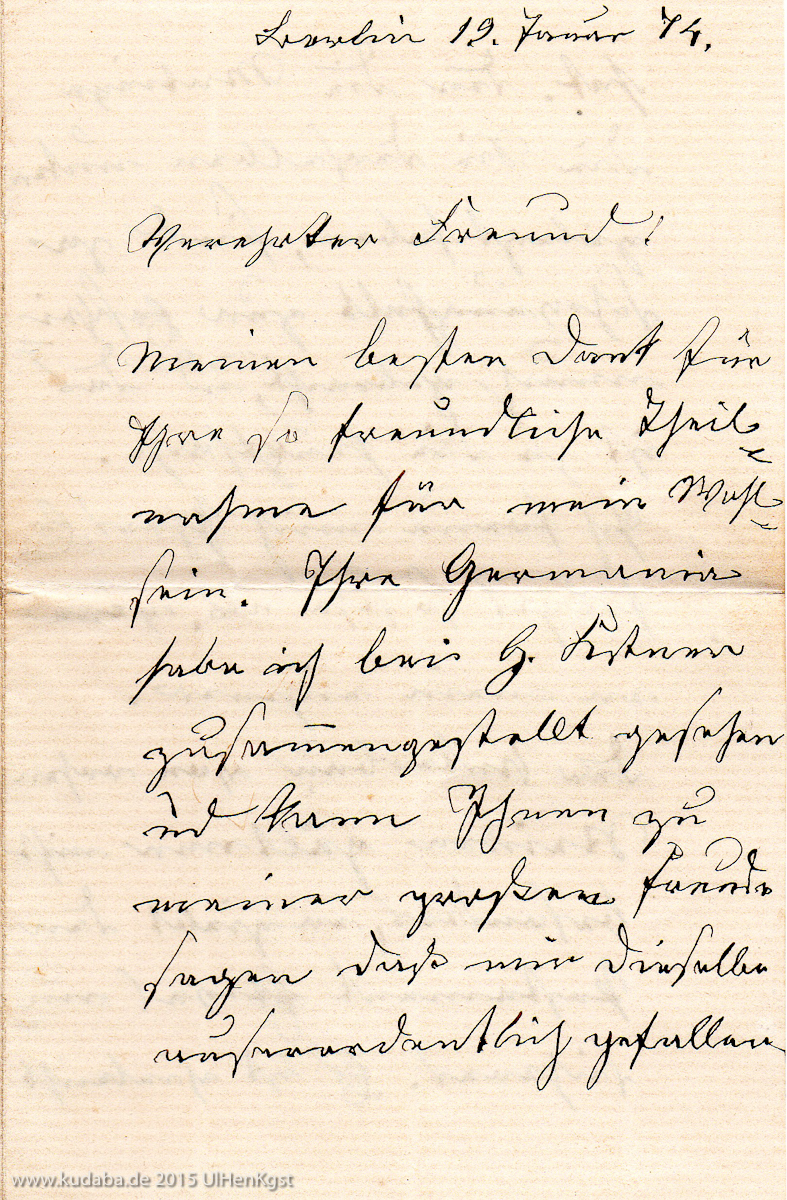 Berlin 19. Januar 74.
Verehrter Freund!
Meinen besten Dank für
Ihre so freundliche Theil-
nahme für mein Wohl-
sein. Ihre Germania
habe ich bei G.
zusam̅engestellt gesehen
ud kann Ihnen zu
meiner großen Freude
sagen daß mir dieselbe
auserordentlich gefallen
www.kudaba.de 2015 UlHenKgst